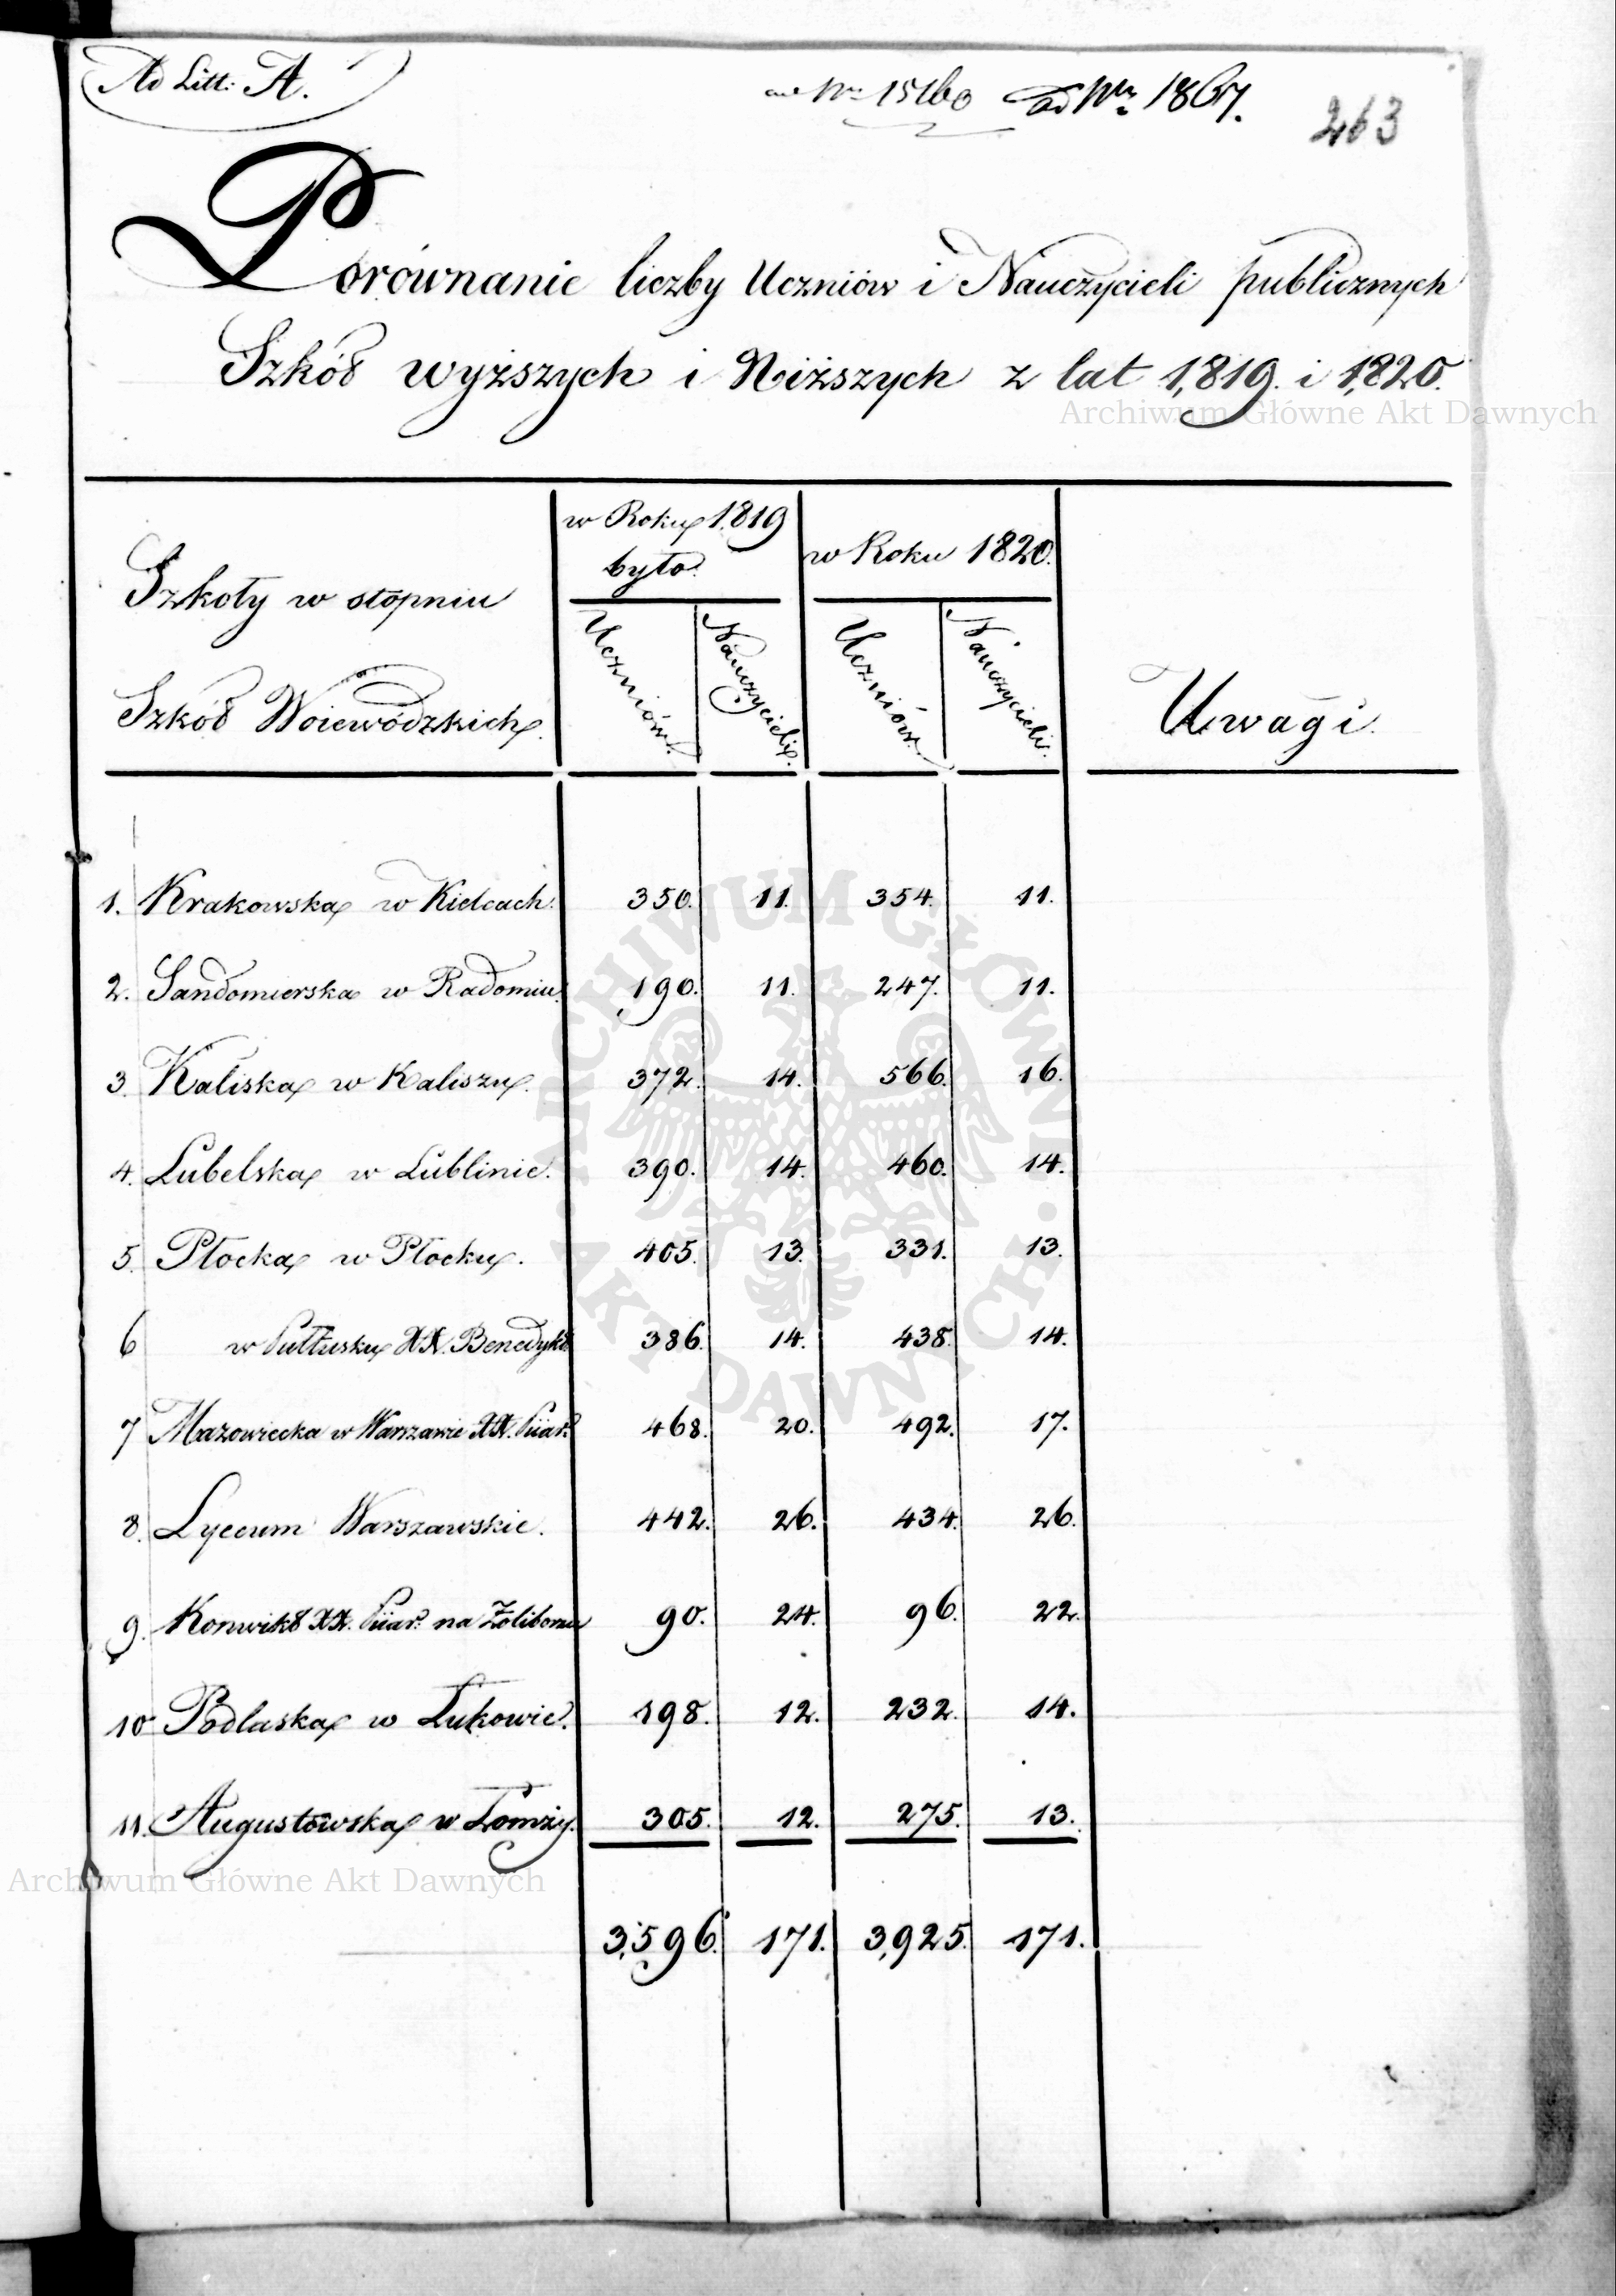 Ad Litt: A.
ad Nr 15160 ad Nr 1867.
263
Porównanie liczby Uczniów i Nauczycieli publicznych
Szkół wyższych i Niższych z lat 1,819. i 1,820.
Archiwum Główne Akt Dawnych
Szkoły w stopniu
Szkół Woiewódzkich.
w Roku 1819
było.
w Roku 1820.
Uczniów.
Nauczycieli.
Uczniów.
Nauczycieli.
Uwagi.
1. Krakowska w Kielcach. 350. 11. 354. 11.
2. Sandomierska w Radomiu. 190. 11. 247. 11.
3. Kaliska w Kaliszu. 372. 14. 566. 16.
4. Lubelska w Lublinie. 390. 14. 460. 14.
5. Płocka w Płocku. 405. 13. 331. 13.
6 w Pułtusku XX. Benedykt. 386. 14. 438. 14.
7 Mazowiecka w Warszawie XX. Piiar. 468. 20. 492. 17.
8. Lyceum Warszawskie. 442. 26. 434. 26.
9. Konwikt XX. Piiar: na Żoliborzu 90. 24. 96. 22.
10 Podlaska w Łukowie. 198. 12. 232. 14.
11. Augustowska w Łomży. 305. 12. 275. 13.
Archiwum Główne Akt Dawnych
3,596. 171. 3,925. 171.
ARCHIWUM GŁÓWNE
AKT DAWNYCH